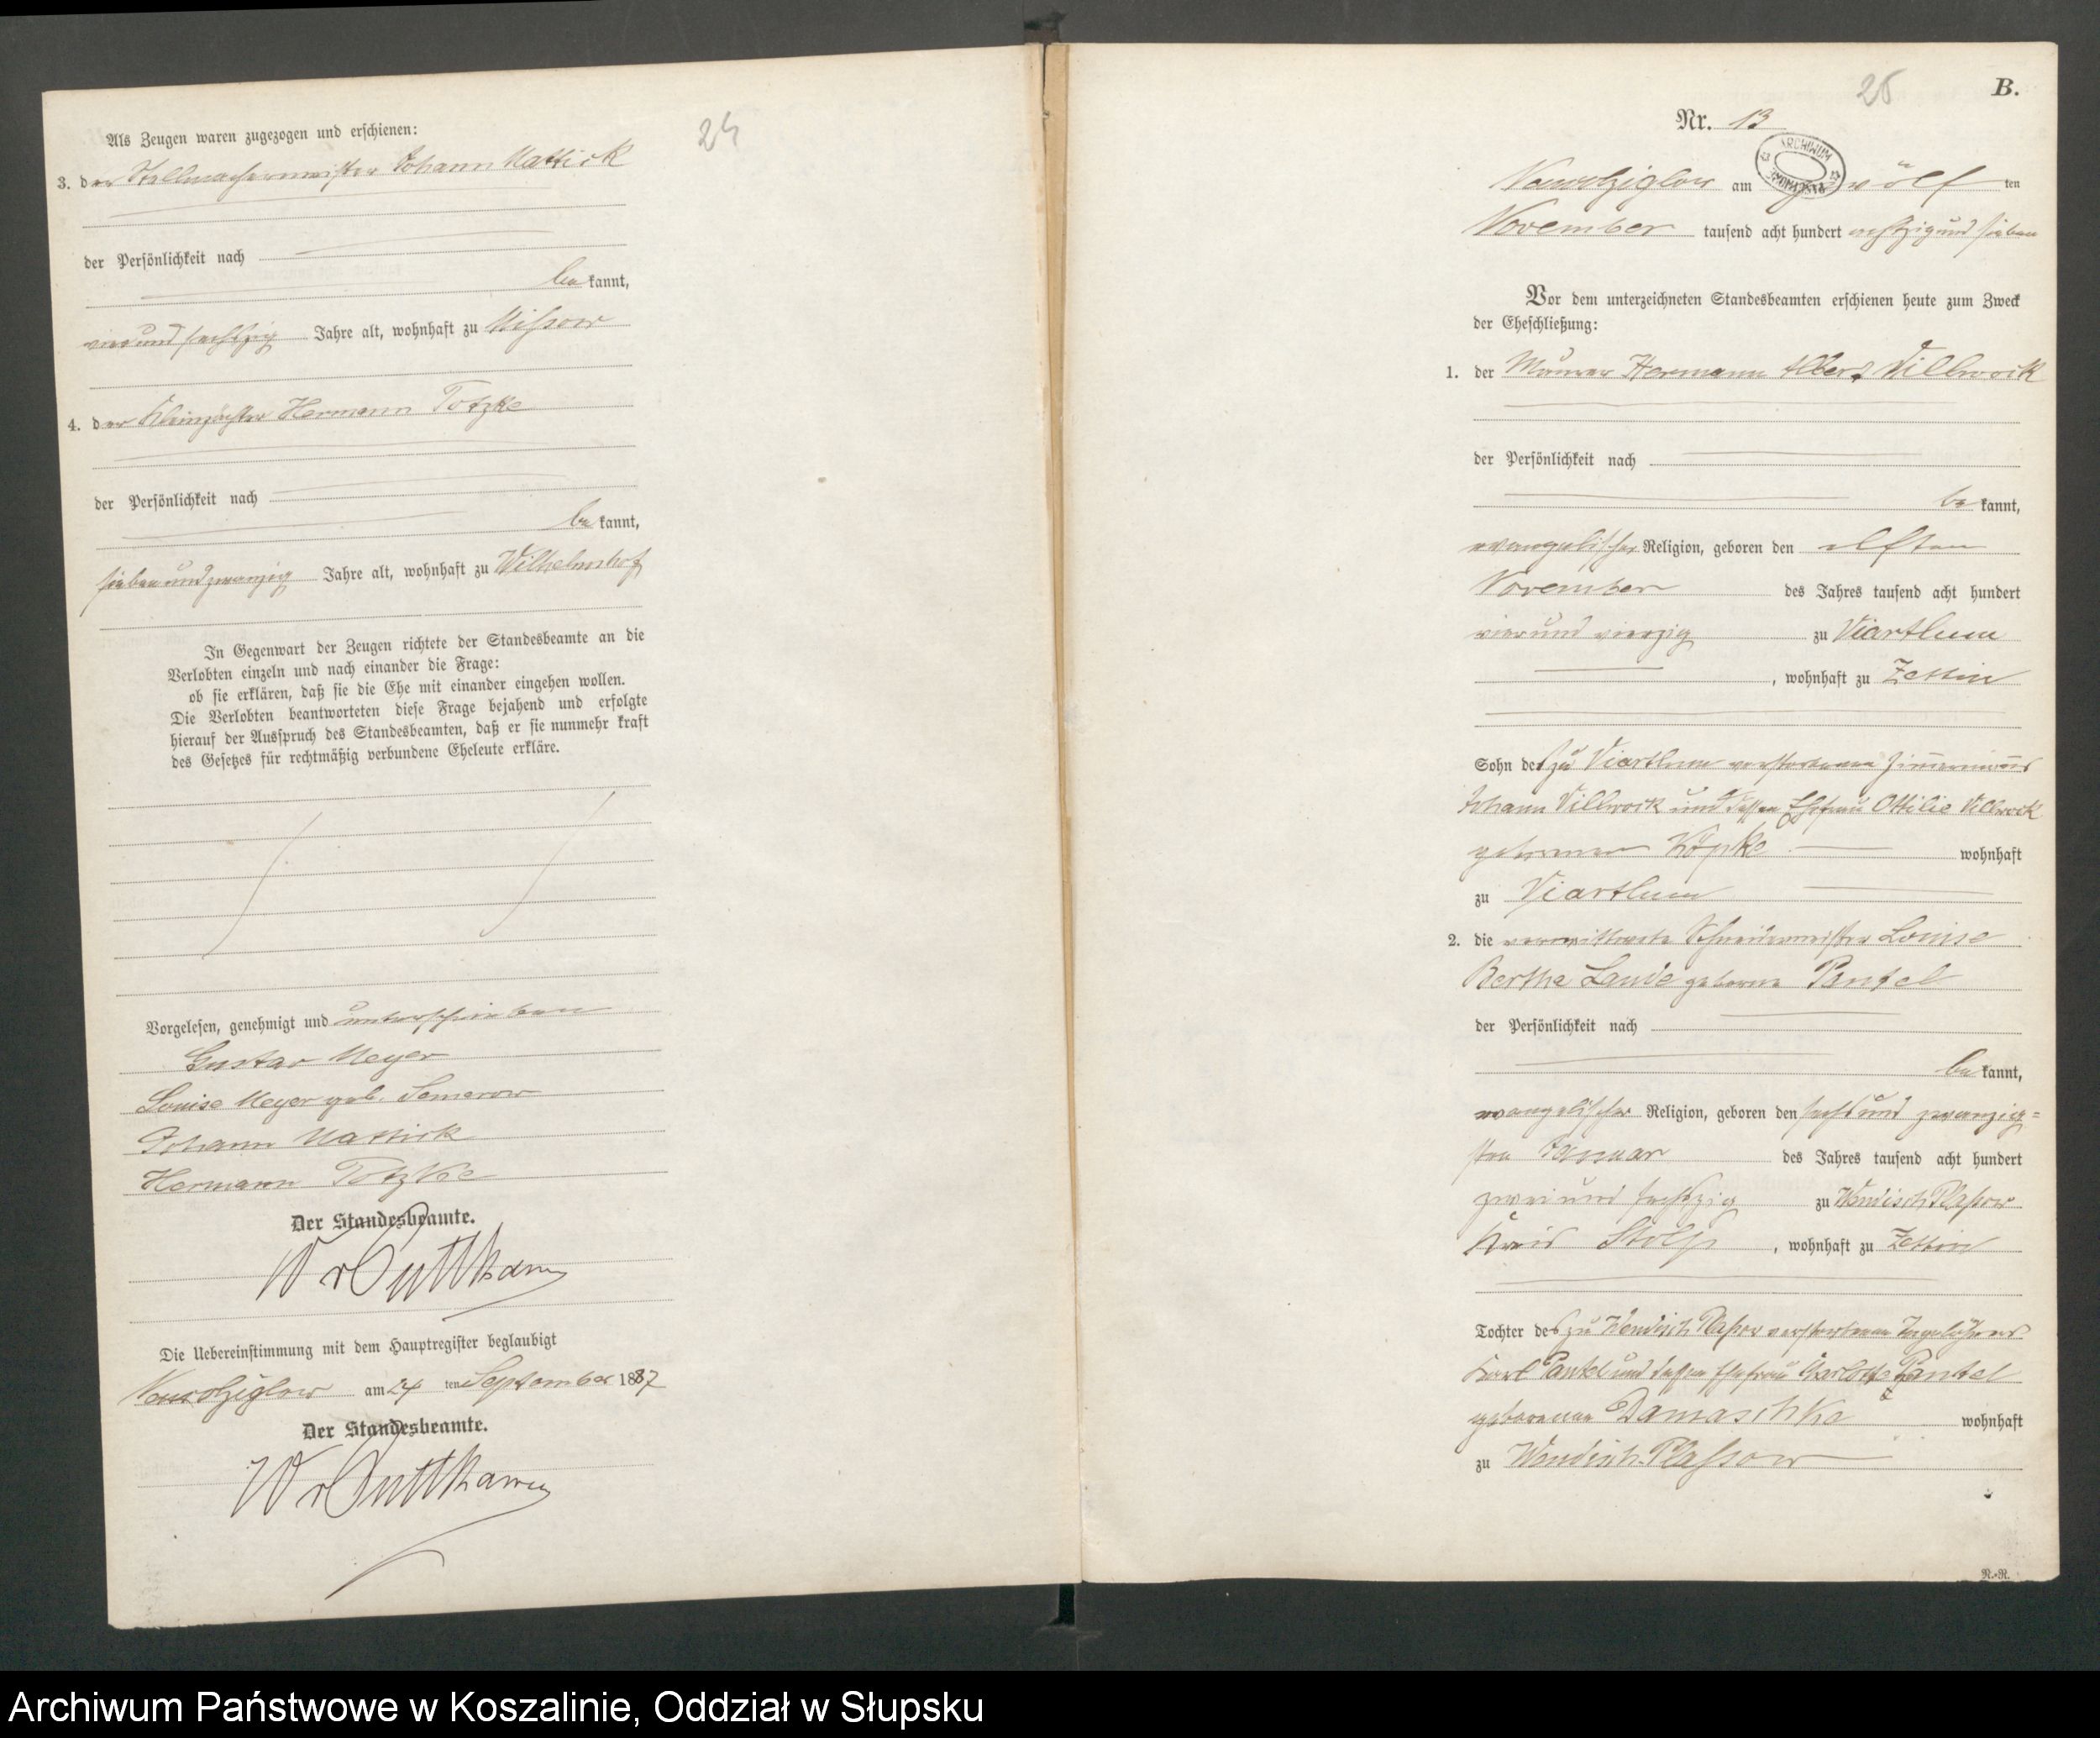 24
Als Zeugen waren zugezogen und erschienen:
3. der Stellmachermeister Johann Mattick
der Persönlichkeit nach
be kannt,
vier und sechszig Jahre alt, wohnhaft zu Misson
4. der Kleinpächter Hermann Totzke
der Persönlichkeit nach
be kannt,
sieben und zwanzig Jahre alt, wohnhaft zu Wilhelmshof
In Gegenwart der Zeugen richtete der Standesbeamte an die
Verlobten einzeln und nach einander die Frage:
ob sie erklären, daß sie die Ehe mit einander eingehen wollen.
Die Verlobten beantworteten diese Frage bejahend und erfolgte
hierauf der Ausspruch des Standesbeamten, daß er sie nunmehr kraft
des Gesetzes für rechtmäßig verbundene Eheleute erkläre.
Vorgelesen, genehmigt und unterschrieben
Gustav Meyer
Louise Meyer geb. Semerow
Johann Mattick
Hermann Totzke
Der Standesbeamte.
W v Puttkamer
Die Uebereinstimmung mit dem Hauptregister beglaubigt
am 24 ten September 1887
Der Standesbeamte.
W v Puttkamer
25
B.
Nr. 13
ARCHIWUM
am zwölf ten
November tausend acht hundert achtzig und sieben
Vor dem unterzeichneten Standesbeamten erschienen heute zum Zweck
der Eheschließung:
1. der Maurer Hermann Albert Villwock
der Persönlichkeit nach
be kannt,
evangelischer Religion, geboren den elften
November des Jahres tausend acht hundert
vier und vierzig zu Viartlum
, wohnhaft zu Zettin
Sohn des zu Viartlum verstorbenen Zimmermanns
Johann Villwock und dessen Ehefrau Ottilie Villwock
geborenen Köpke wohnhaft
zu Viartlum
2. die verwittwete Schneidermeister Louise
Bertha Lande geborne Pantel
der Persönlichkeit nach
be kannt,
evangelischer Religion, geboren den sechs und zwanzig=
sten Januar des Jahres tausend acht hundert
zwei und sechszig zu Wendisch Plassow
Kreis Stolp , wohnhaft zu Zettin
Tochter des zu Wendisch Plassow verstorbenen Tagelöhners
Karl Pantel und dessen Ehefrau Charlotte Pantel
geborenen Damaschke wohnhaft
zu Wendisch-Plassow
R.-R.
Archiwum Państwowe w Koszalinie, Oddział w Słupsku